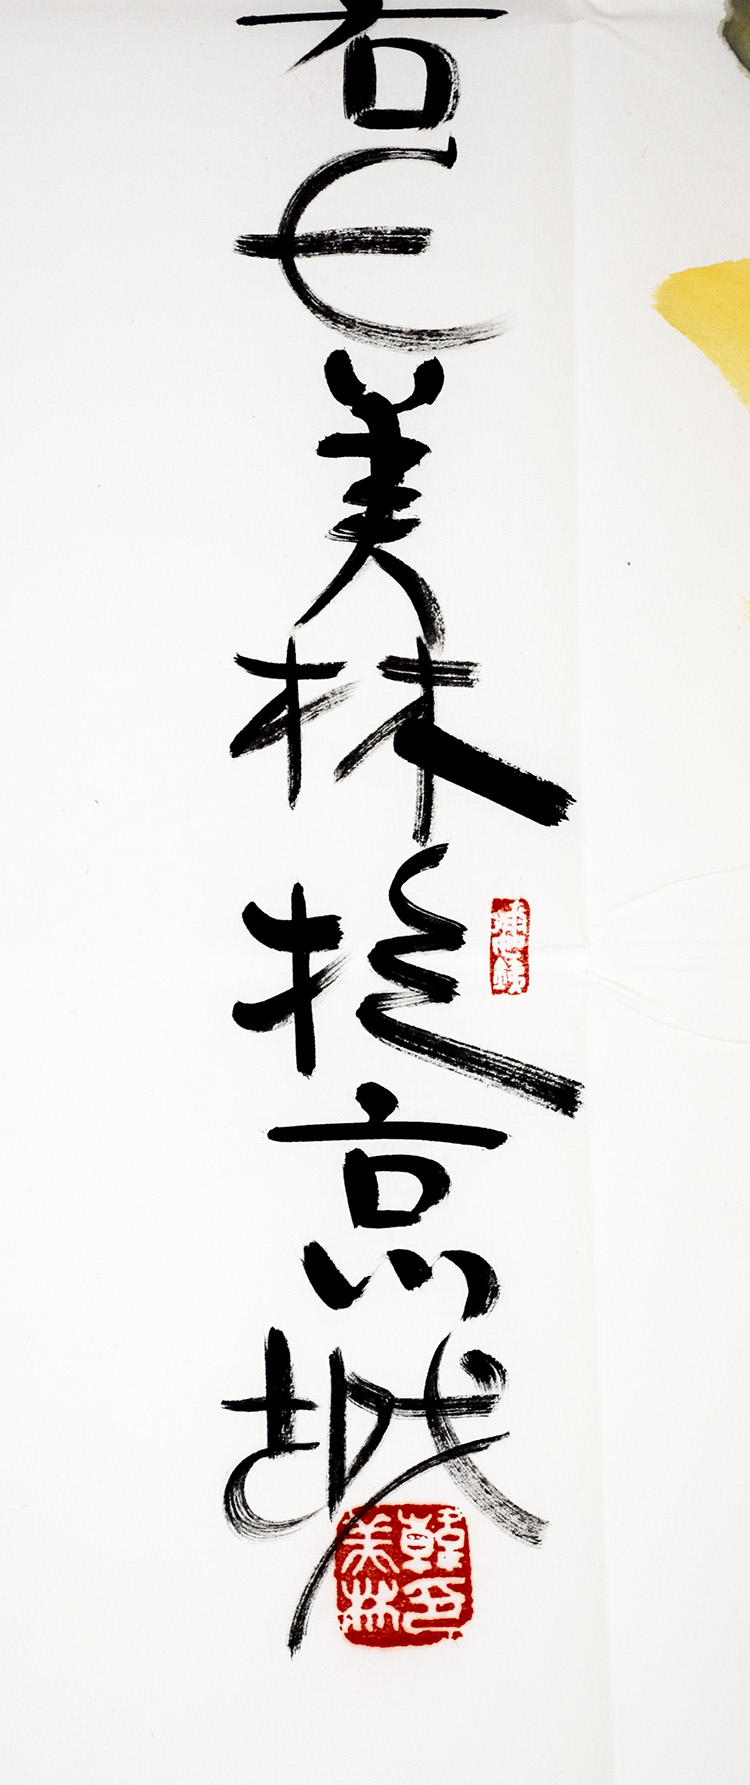 美林於京城
韓美林印